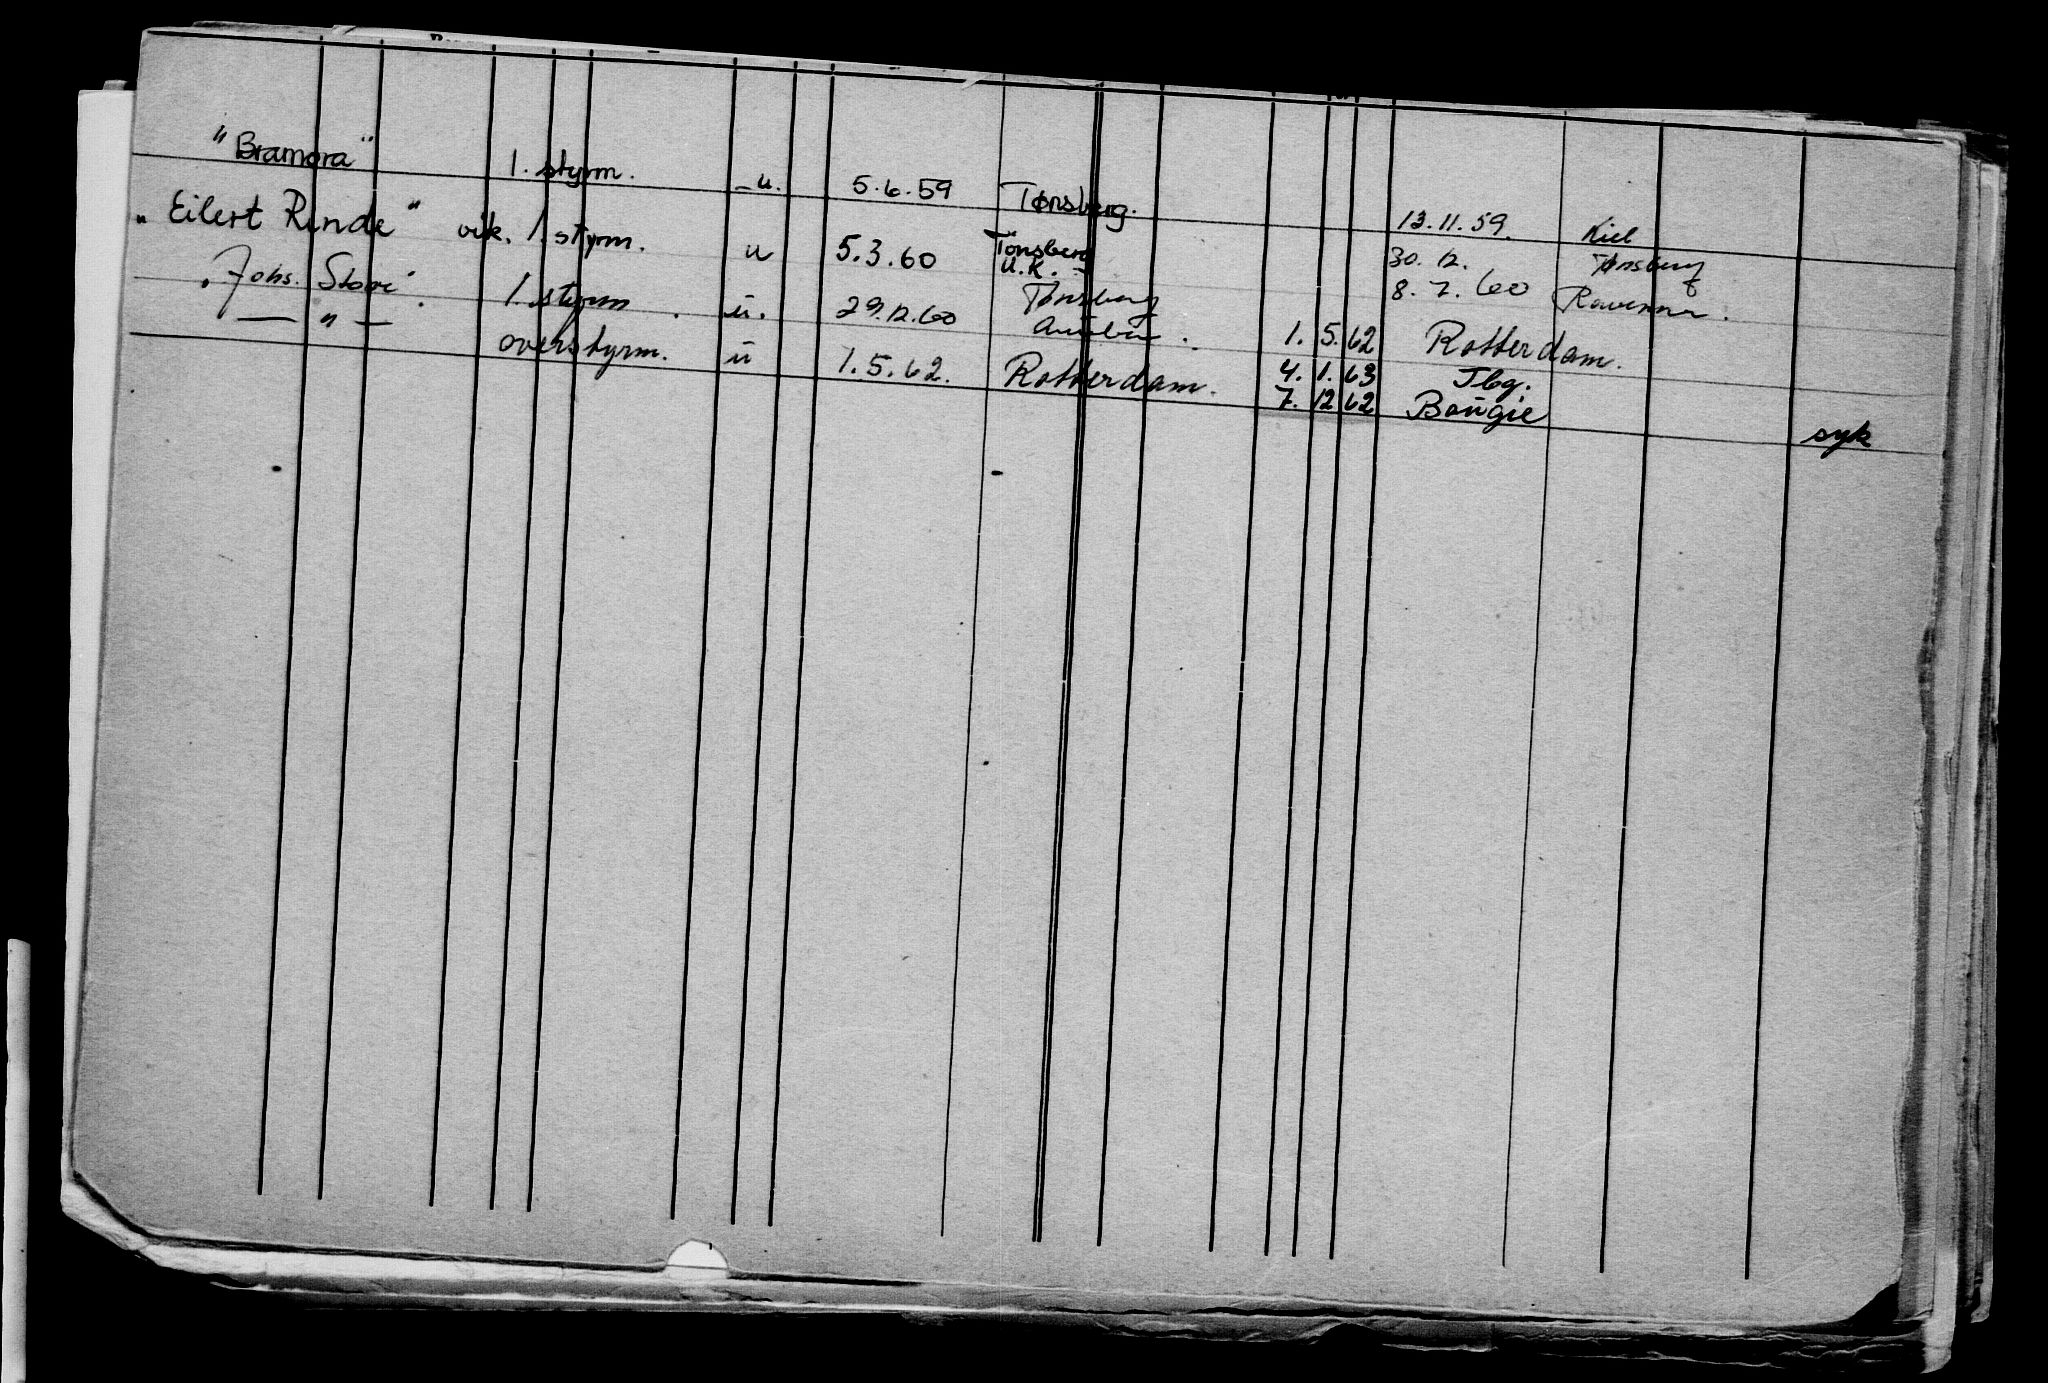 "Bramora" 1. styrm. - u. 5.6.59 Tønsberg. 13.11.59. Kiel
"Eilert Rinde" vik. 1. styrm. u 5.3.60 Tønsberg U.K. - 30.12. Tønsberg
8.7.60 Ravenna.
"Johs. Stove". 1. styrm. u. 29.12.60 Tønsberg 1.5.62 Rotterdam.
— " — overstyrm. u 1.5.62. Rotterdam. 4.1.63 Tbg.
7.12.62 Bougie syk